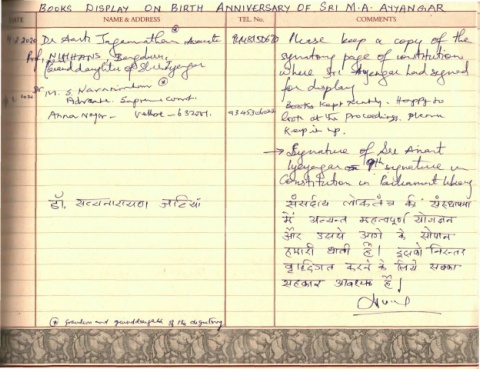 BOOKS DISPLAY ON BIRTH ANNIVERSARY OF SRI M.A. AYYANGAR
DATE NAME & ADDRESS TEL. No. COMMENTS
Dr Aarti Jagannathan
Prof, NIMHANS
Granddaughter of
Please keep a copy of the
signatory page of constitution
where Sri Ayengar had signed
for display
M. S.
Advocate. Supreme Court.
Anna Nagar
Books Kept Neatly. Happy to
look at the Proceedings. please
Keep it up.
→ Signature of Sri Anant
signature in
Constitution in Parliament library
डॉ. सत्यनारायण जटिया
संसदीय लोकतंत्र की संस्थापना
में अत्यन्त महत्वपूर्ण योगदान
और उससे आगे के सोपान
हमारी थाती है। इसको निरन्तर
करने के लिये सबका
सहकार आवश्यक है।
Grandson and granddaughter of the dignitary